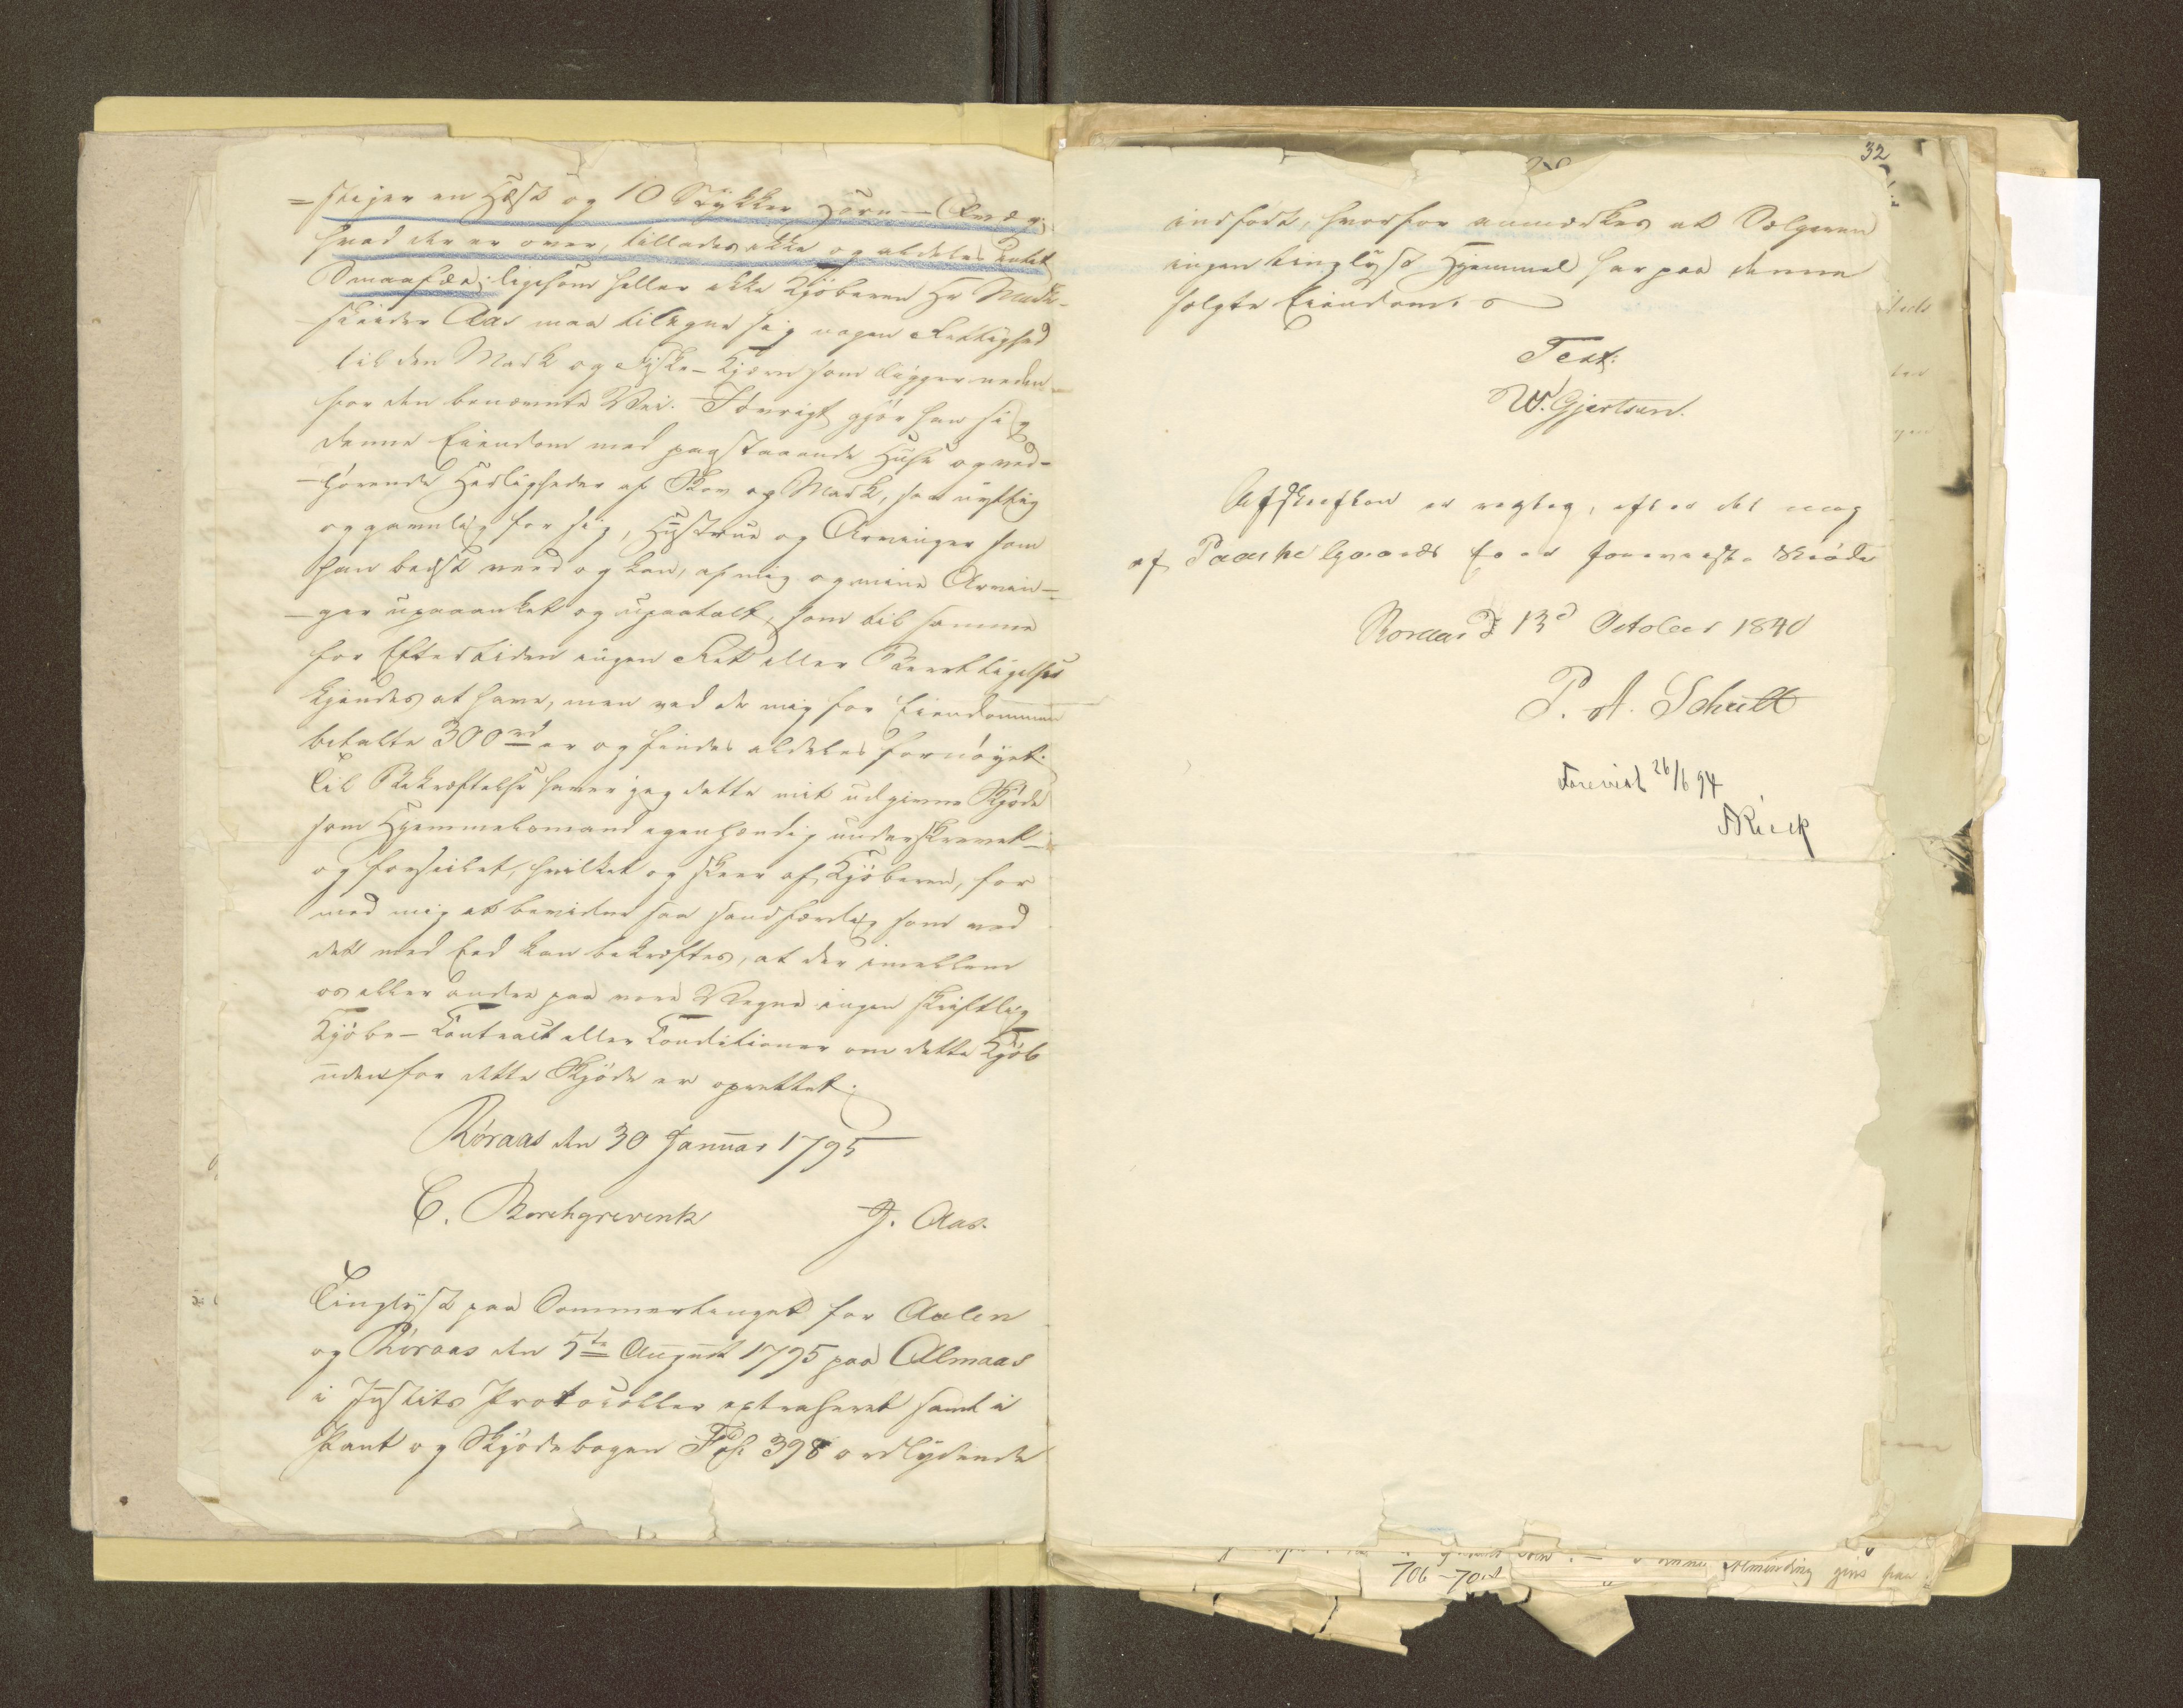 -stiger en Hest og 10 Stykker Horn-Qvæg;
hvad der er over, tillades ikke og aldeles intet
Smaafæe; ligesom heller ikke Kjöberen Hr Mark-
skeider Aas maa tilegne sig nogen Rettighed
til den Mark og Fiske-Kjærn som ligger neden-
for den benævnte Vei. Iövrigt gjör han sig
denne Eiendom med paastaaende Huse og ved-
-hörende Herligheder af Skov og Mark, saa nyttig
og gavnlig for sig, Hustrue og Arvinger som
han bedst veed og kan, af mig og mine Arvin-
-ger upaaanket og upaatalt, som til samme
for Eftertiden ingen Ret eller Berettigelse
kjendes at have, men ved de mig for Eiendommen
betalte 300 rd er og findes aldeles fornöyet.
Til Bekræftelse haver jeg dette mit udgivne Skjöde
som Hjemmelsmand egenhændig underskrevet
og forseilet, hvilket og skeer af Kjöberen, for
med mig at bevidne saa sandfærdig som ved
det med Eed kan bekræftes, at der imellem
os eller andre paa vore Vegne ingen skriftlig
Kjöbe-Contract eller Conditioner om dette Kjöb
udenfor dette Skjöde er oprettet.
Röraas den 30 Januar 1795
C. Borchgrevenk J. Aas.
Tinglyst paa Sommertinget for Aalen
og Röraas den 5te August 1795 paa Almaas
i Justits Protocoller extraheret samt i
Pant og Skjödebogen Fol: 398 ordlydende
32
indfört, hvorfor anmærkes at Sælgeren
ingen tinglyst Hjemmel har paa denne
solgte Eiendom.
Test:
W. Gjertsen.
Afskriften er rigtig, efter det mig
af Paaske Gaaards Eier foreviste Skiöde
Roraas d 13d October 1840
P. A. Schult
Forevist 26/6 94
706-70
Alminding